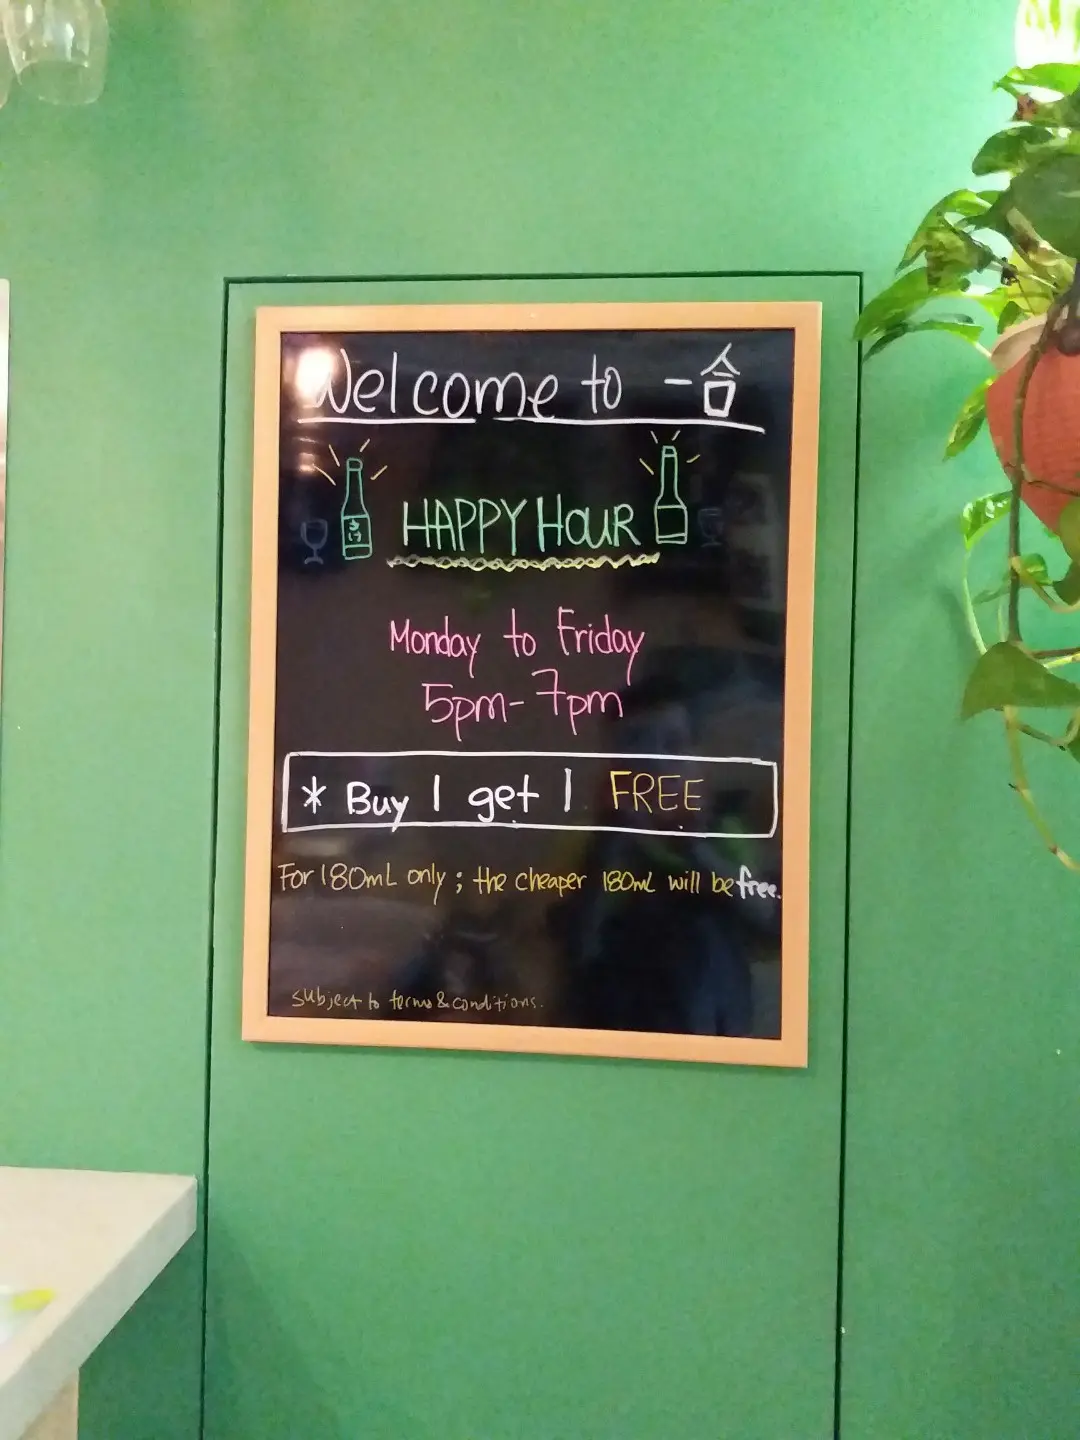 Welcome to 一合
HAPPY HOUR
Monday to Friday
5pm - 7pm
* Buy 1 get 1 FREE
For 180mL only ; the cheaper 180mL will be free.
subject to terms & conditions.